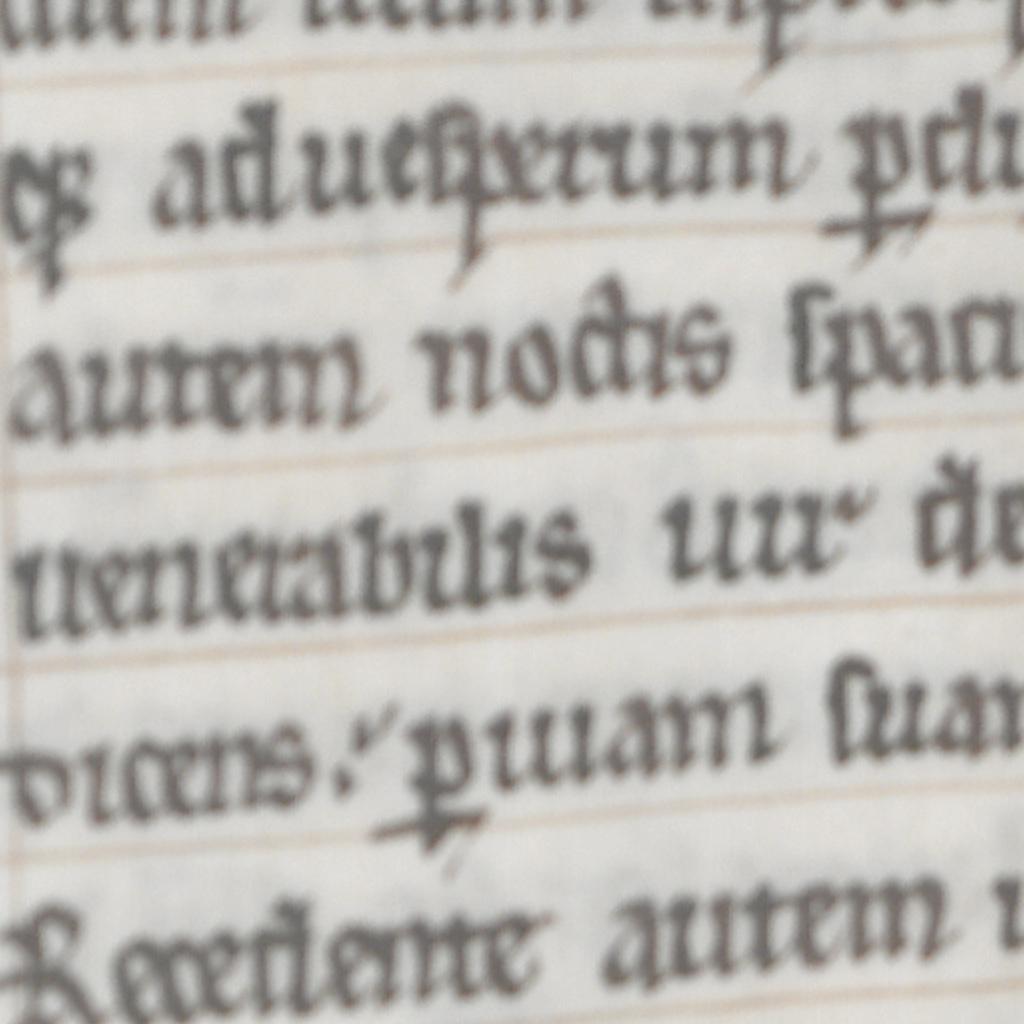 autem
aduesperum
autem noctis spaci
uenerabilis uir de
dicens: puiam suam
Recedente autem